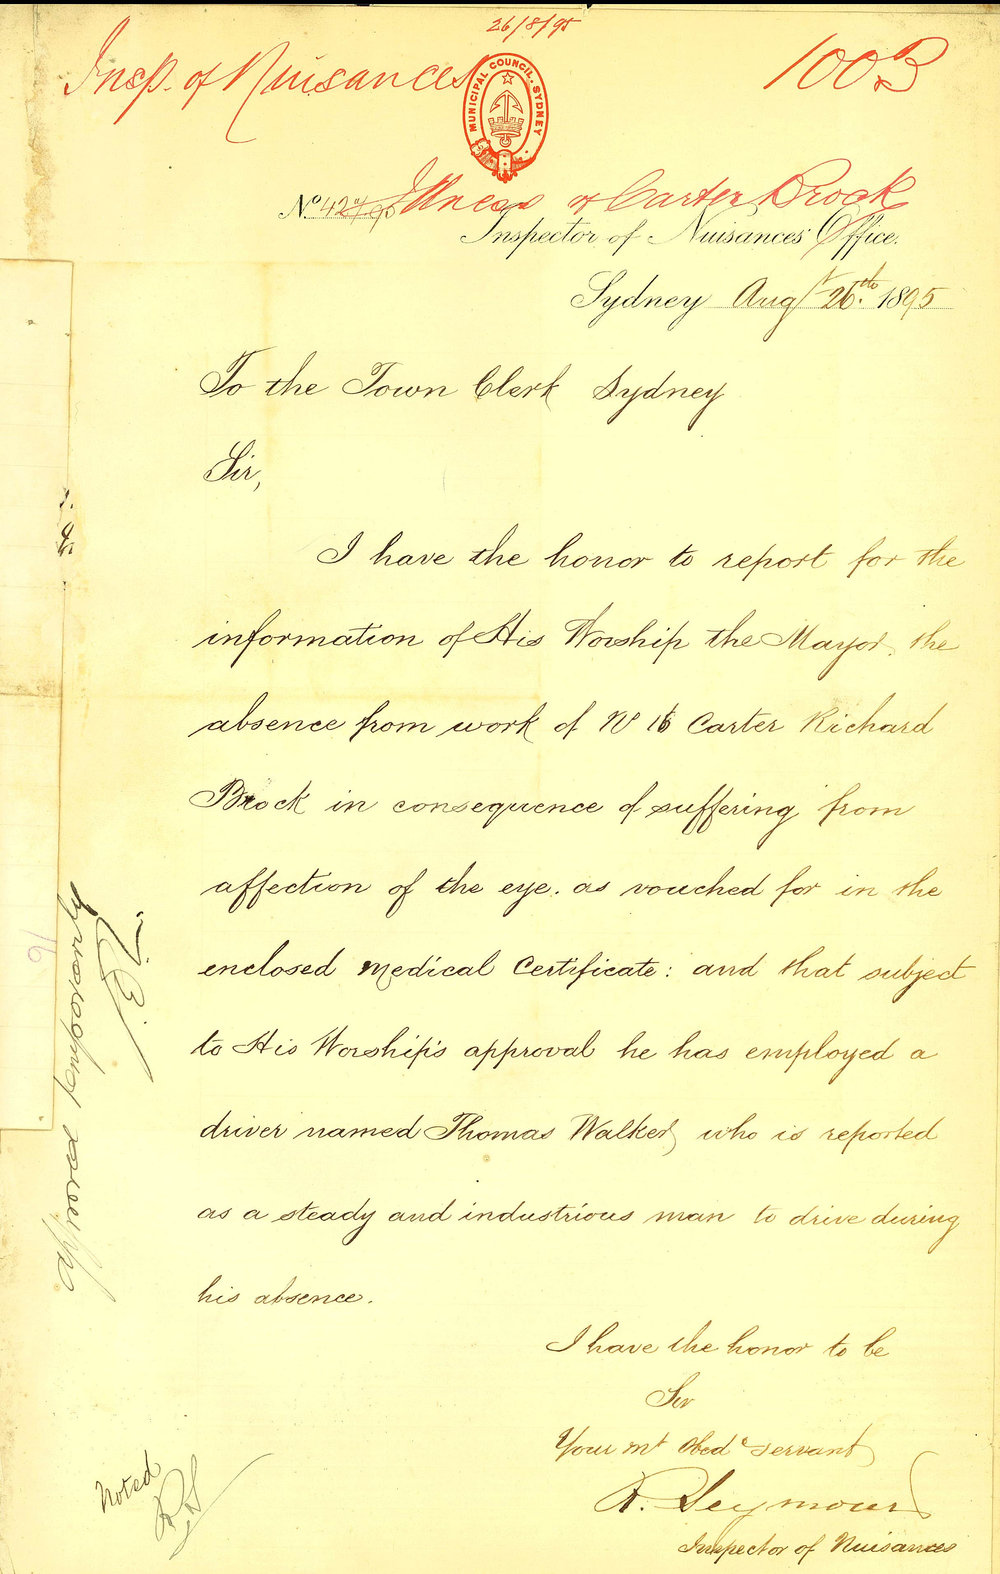 26/8/95
Insp. of Nuisances
1003
MUNICIPAL COUNCIL. SYDNEY
Illness of Carter Brock
No 427/95
Inspector of Nuisances' Office.
Sydney Augt 26th 1895
To the Town Clerk Sydney
Sir,
I have the honor to report for the
information of His Worship the Mayor, the
absence from work of No 16 Carter Richard
Brock in consequence of suffering from
affection of the eye. as vouched for in the
enclosed Medical Certificate: and that subject
to His Worship's approval he has employed a
driver named Thomas Walker, who is reported
as a steady and industrious man to drive during
his absence.
I have the honor to be
Sir
Your mt Obedt servant
R. Seymour
Inspector of Nuisances
Noted
RS
approved temporarily
16